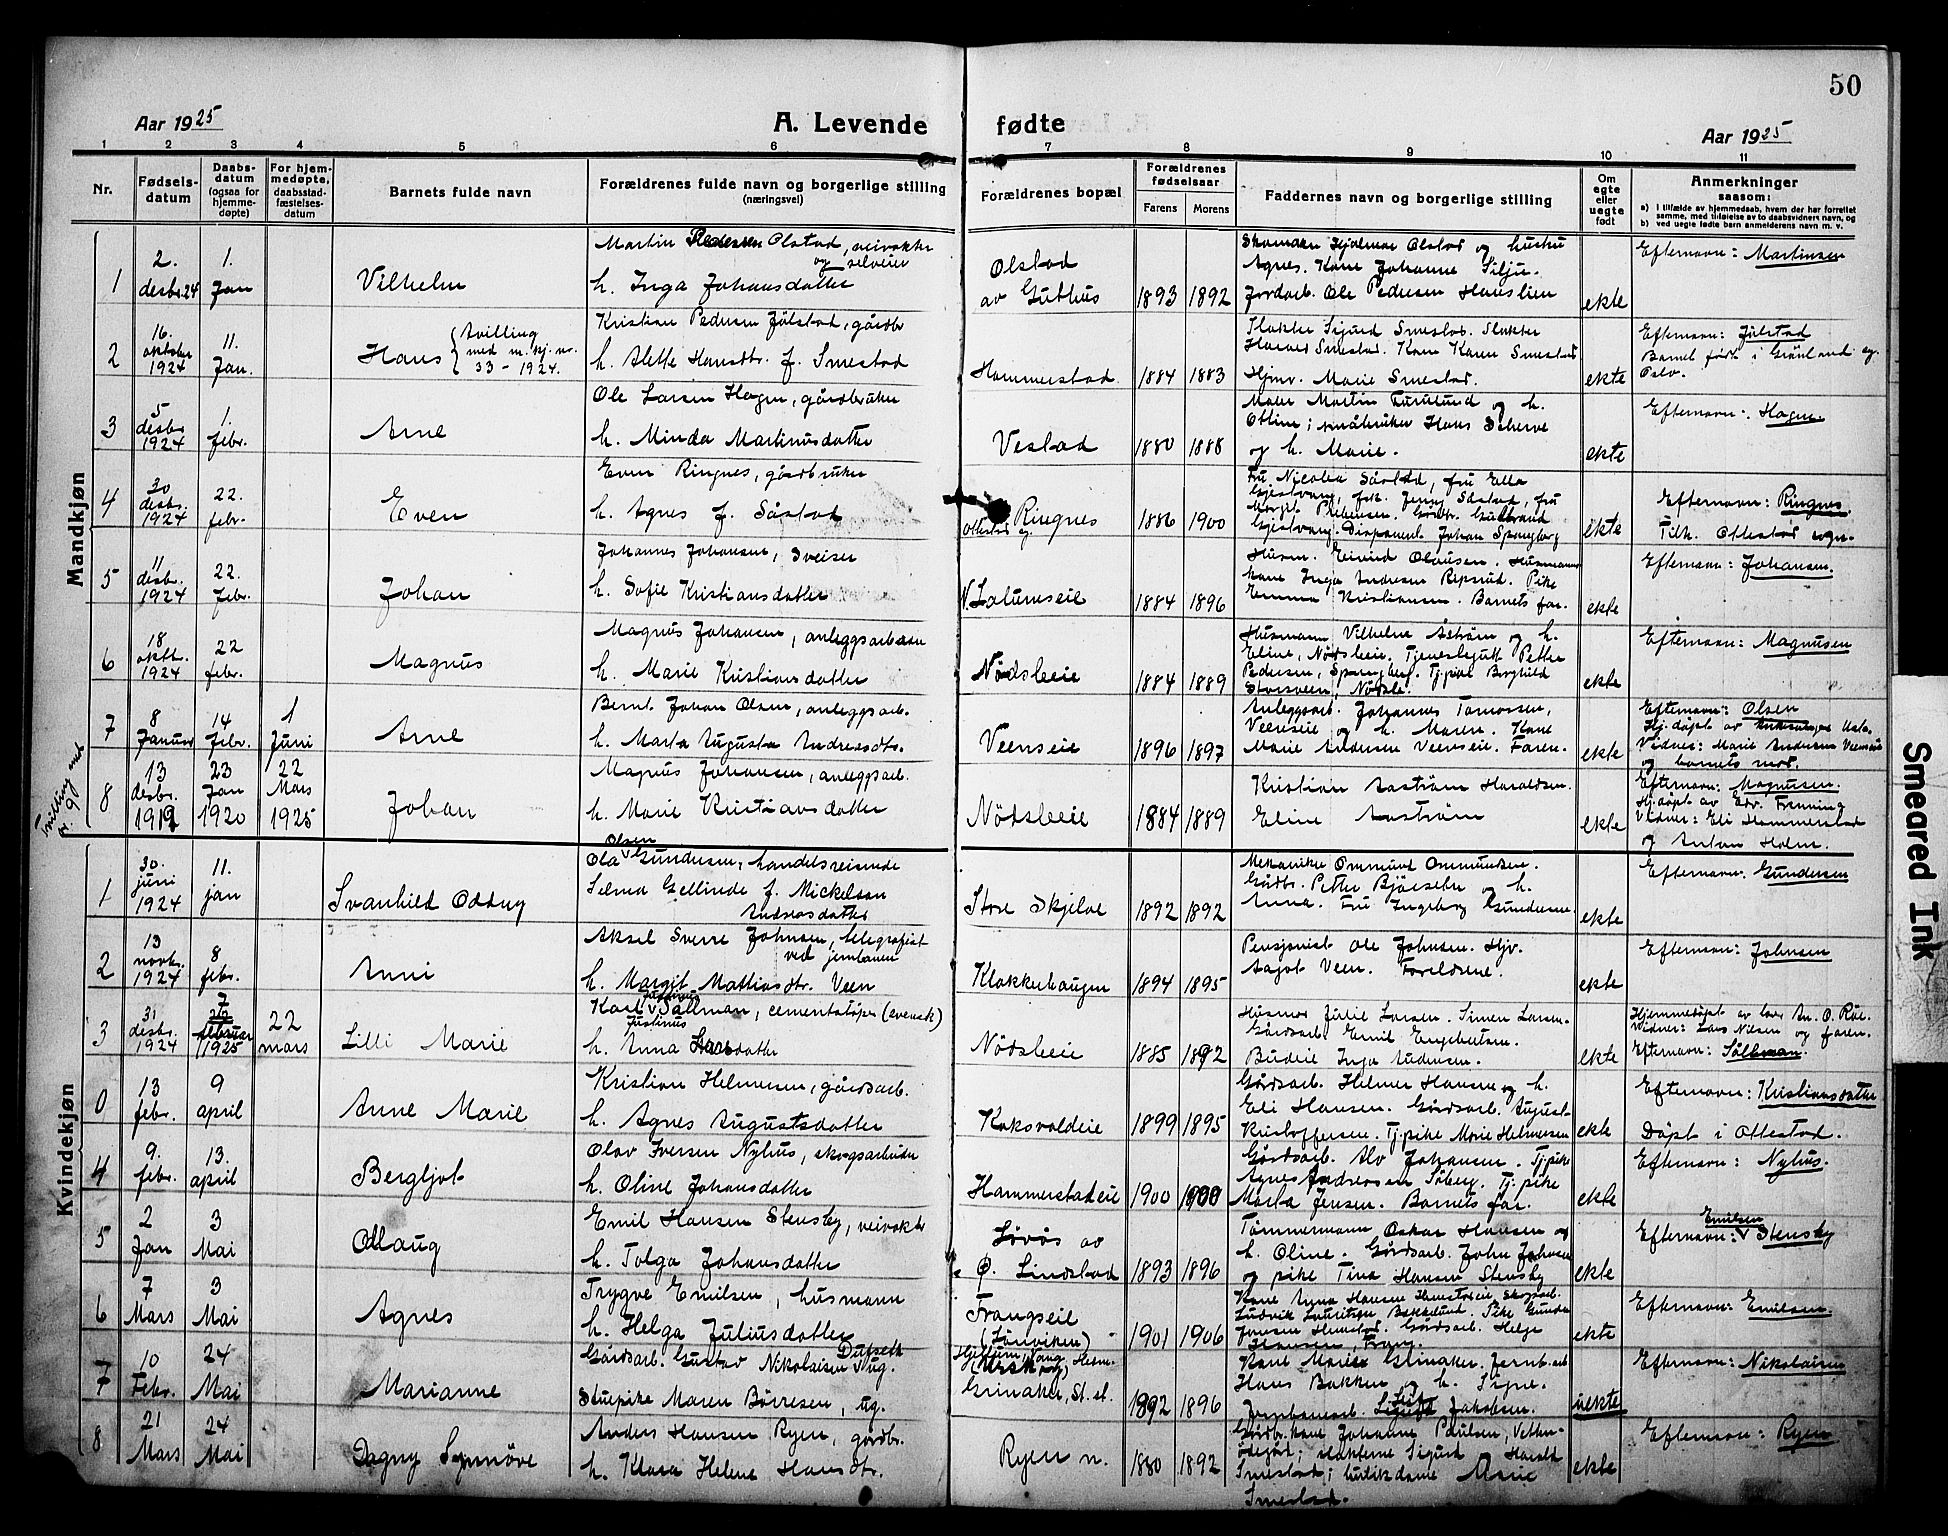 50
Aar 1925
A. Levende fødte
Aar 1925
1 2 3 4 5 6 7 8 9 10 11
Nr.
Fødsels-
datum
Daabs-
datum
(ogsaa for
hjemme-
døpte)
For hjem-
medøpte,
daabsstad-
fæstelses-
datum
Barnets fulde navn
Forældrenes fulde navn og borgerlige stilling
(næringsvei)
Forældrenes bopæl
Forældrenes
fødselsaar
Farens Morens
Faddernes navn og borgerlige stilling
Om
egte
eller
uegte
født
Anmerkninger
saasom:
a) I tilfælde av hjemmedaab, hvem der har forrettet
samme, med tilføielse av to daabsvidners navn, og
b) ved uegte fødte barn anmelderens navn m. v.
Mandkjøn
1
2. desbr. 24
1. Jan
Vilhelm
Martin Pedersen Olstad, veivokter
og selveier
h. Inga Johansdatter
Olstad
av Guthus
1893 1892
Hjalmar Olstad og hustru
Agnes. Kone Johanne Silju
Jordarb. Ole Pedersen Hanslien
ekte
Efternavn: Martinsen
2
16. oktober 1924
11. Jan.
Hans
tvilling
med m. kj. nr.
33 - 1924.
Kristian Pedersen Jølstad, gårdbr
h. Alette Hansdtr. f. Smestad
Hammerstad
1884 1883
Slakter Sigurd Smestad. Slakter
Harald Smestad. Kone Karen Smestad
Hjmv. Marie Smestad.
ekte
Efternavn: Jølstad
Barnet født i Grønland sg.
Oslo.
3
5 desbr 1924
1. febr.
Arne
Ole Larsen Hagen, gårdbruker
h. Minda Martinusdatter
Vestad
1880 1888
Maler Martin Furulund og h.
Otline; småbruker Hans Scherve
og h. Marie.
ekte
Efternavn: Hagen
4
30 desbr. 1924
22. febr.
Even
Even Ringnes, gårdbruker
h. Agnes f. Såstad
Ringnes
Ottestad sg.
1886 1900
Fru Nicolea Såstad, fru Ella
Gjestvang, frk. Jenny Såstad, fru
Margit Pedersen. Gårdbr. Gulbrand
Gjestvang. Disponent Johan Spangberg
ekte
Efternavn: Ringnes.
Tilh. Ottestad sogn.
5
11 desbr. 1924
22. febr.
Johan
Johannes Johansen, sveiser
h. Sofie Kristiansdatter
N. Lalumseie
1884 1896
Husm. Eivind Olausen. Husmanns
kone Inga Andersen Repsrud. Pike
Emma Kristiansen. Barnets far.
ekte
Efternavn: Johansen.
6
18 oktb. 1924
22 febr.
Magnus
Magnus Johansen, anleggsarbeider
h. Marie Kristiansdatter
Nødsleeie
1884 1889
Husmann Vilhelm Åstrøm og h.
Eline, Nødsleeie. Tjenestegutt Petter
Pedersen, Spangberg. Tj.pike Borghild
Storsveen, Nødsle.
ekte
Efternavn: Magnusen
7
8 Januar
14 febr.
1 Juni
Arne
Bernt Johan Olsen, anleggsarb.
h. Marta Augusta Andreasdtr.
Veenseie
1896 1897
Anleggsarb. Johannes Tomassen,
Veenseie og h. Maren. Kone
Marie Andersen Veenseie. Faren.
ekte
Efternavn: Olsen
Hj.døpt av
Vidner: Marie Andersen Veenseie
og barnets mor.
Tvilling med
nr. 9
8
13 desbr. 1919
23 Jan 1920
22 Mars 1925
Johan
Magnus Johansen, anleggsarb.
h. Marie Kristiansdatter
Nødsleeie
1884 1889
Kristian Aastrøm Haraldsen.
Eline Aastrøm
ekte
Efternavn: Magnusen.
Hj.døpt av Edv. Frenning
Vidner: Eli Hammerstad
og Anton Holm.
Kvindekjøn
1
30. juni 1924
11. jan
Svanhild Oddny
Olsen
Ola Gundersen, handelsreisende
Selma Gellinde f. Mickelsen
Andreasdatter
Store Skjelve
1892 1892
Mekaniker Ommund Ommundsen.
Gårdbr. Petter Bjørseth og h.
Anna. Fru Ingeborg Gundersen.
ekte
Efternavn. Gundersen
2
13 novbr. 1924
8 febr.
Anni
Aksel Sverre Johnsen, telegrafist
ved jernbanen
h. Margit Mathiasdtr. Veen
Klokkerhaugen
1894 1895
Pensjonist Ole Johnsen. Hjv.
Aagot Veen. Foreldrene.
ekte
Efternavn: Johnsen
3
31 desbr. 1924
7 februar 1925
22 mars
Lilli Marie
Karl Sällman, cementstøper (svensk)
Justinus
h. Anna Larsdatter
Nødsleeie
1885 1892
Husmor Julie Larsen. Simen Larsen.
Gårdsarb. Emil Engebretsen.
Budeie Inga Andersen.
ekte
Hjemmedøpt av lærer An. O. Røe.
Vidner: Lars Nilsen og faren.
Efternavn: Sällman.
0
13 febr.
9 april
Anne Marie
Kristian Helmersen, gårdsarb.
h. Agnes Augustsdatter
Koksvoldeie
1899 1895
Gårdsarb. Helmer Hansen og h.
Eli Hansen. Gårdsarb. August
Kristoffersen. Tj.pike Marie Helmersen
ekte
Efternavn: Kristiansdatter
Døpt i Ottestad.
4
9. febr.
13. april
Bergljot
Olav Iversen Nyhus, skogsarbeider
h. Oline Johansdatter
Hammerstadeie
1900 1900
Gårdsarb. Alv Johansen. Tj.pike
Agnes Andreassen Søberg. Tj. pike
Marta Jensen. Barnets far.
ekte
Efternavn: Nyhus.
5
2 Jan
3 Mai
Ollaug
Emil Hansen Stensby, veivokter
h. Tolga Johansdatter
Løvås av
Ø. Lindstad
1893 1896
Tømmermann Oskar Hansen og
h. Oline. Gårdsarb. John Johnsen
og pike Tina Hansen Stensby
ekte
Emilsen
Efternavn: Stensby
6
7 Mars
3 Mai
Agnes
Trygve Emilsen, husmann
h. Helga Juliusdatter
Frangseie
(Tønviken)
1901 1906
Kone Anna Hansen Skogsarb.
Ludvik Lauritsen Bakkelund. Pike Gunda
Jensen Gårdsarb. Helge
Hansen, Frang.
ekte
Efternavn: Emilsen.
7
10 Febr.
24 Mai
Marianne
Dufseth
Gårdsarb. Gustav Nikolaisen ug.
Stuepike Maren Børresen, ug.
Hjellum, Vang, Hedm.
Grinaker, St. st.
1892 1896
Kone Marie Grinaker. Jernb.arb.
Hans Bakken og h. Signe.
Jernbanearb. Jakobsen.
uekte
Efternavn: Nikolaisen
8
21 Mars
24 Mai
Dagny Synnøve
Anders Hansen Ryen, gårdbr.
h. Klara Helene Hansdtr.
Ryen n.
1880 1892
Gårdbr.kone Johanne Paulsen, Vetten-
ødegård; slakterne Sigurd og Harald
Smestad; butikdame Marie
Smestad.
ekte
Efternavn: Ryen
Smeared Ink